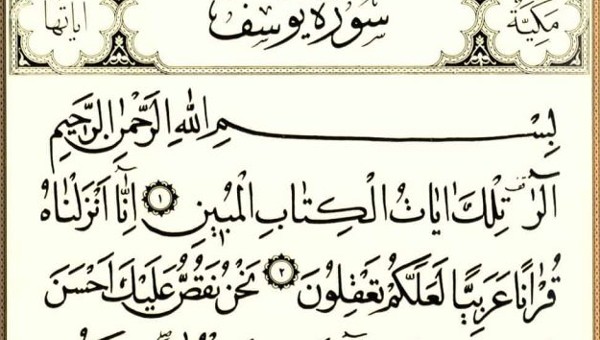 مكية سورة يوسف آياتها
بِسْمِ اللهِ الرَّحْمٰنِ الرَّحِيمِ
الٓرٰ ۚ تِلْكَ اٰيَاتُ الْكِتَابِ الْمُبِينِ ﴿١﴾ اِنَّٓا اَنْزَلْنَاهُ
قُرْاٰنًا عَرَبِيًّا لَعَلَّكُمْ تَعْقِلُونَ ﴿٢﴾ نَحْنُ نَقُصُّ عَلَيْكَ اَحْسَنَ